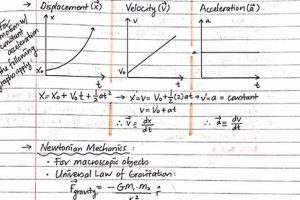 Displacement (x⃗) Velocity (v⃗) Acceleration (a⃗)
For
motion w/
constant
acceleration
the following
graphs apply:
x v a
x₀ v₀ a
t t t
x = x₀ + v₀t + ½at² → x' = v = v₀ + ½(2)at → v' = a = constant
v = v₀ + at
∴ v⃗ ≡ dx/dt ∴ a⃗ ≡ dv/dt
→ Newtonian Mechanics:
• For macroscopic objects
• Universal Law of Gravitation:
F⃗gravity = -GM₁M₂/r² r̂